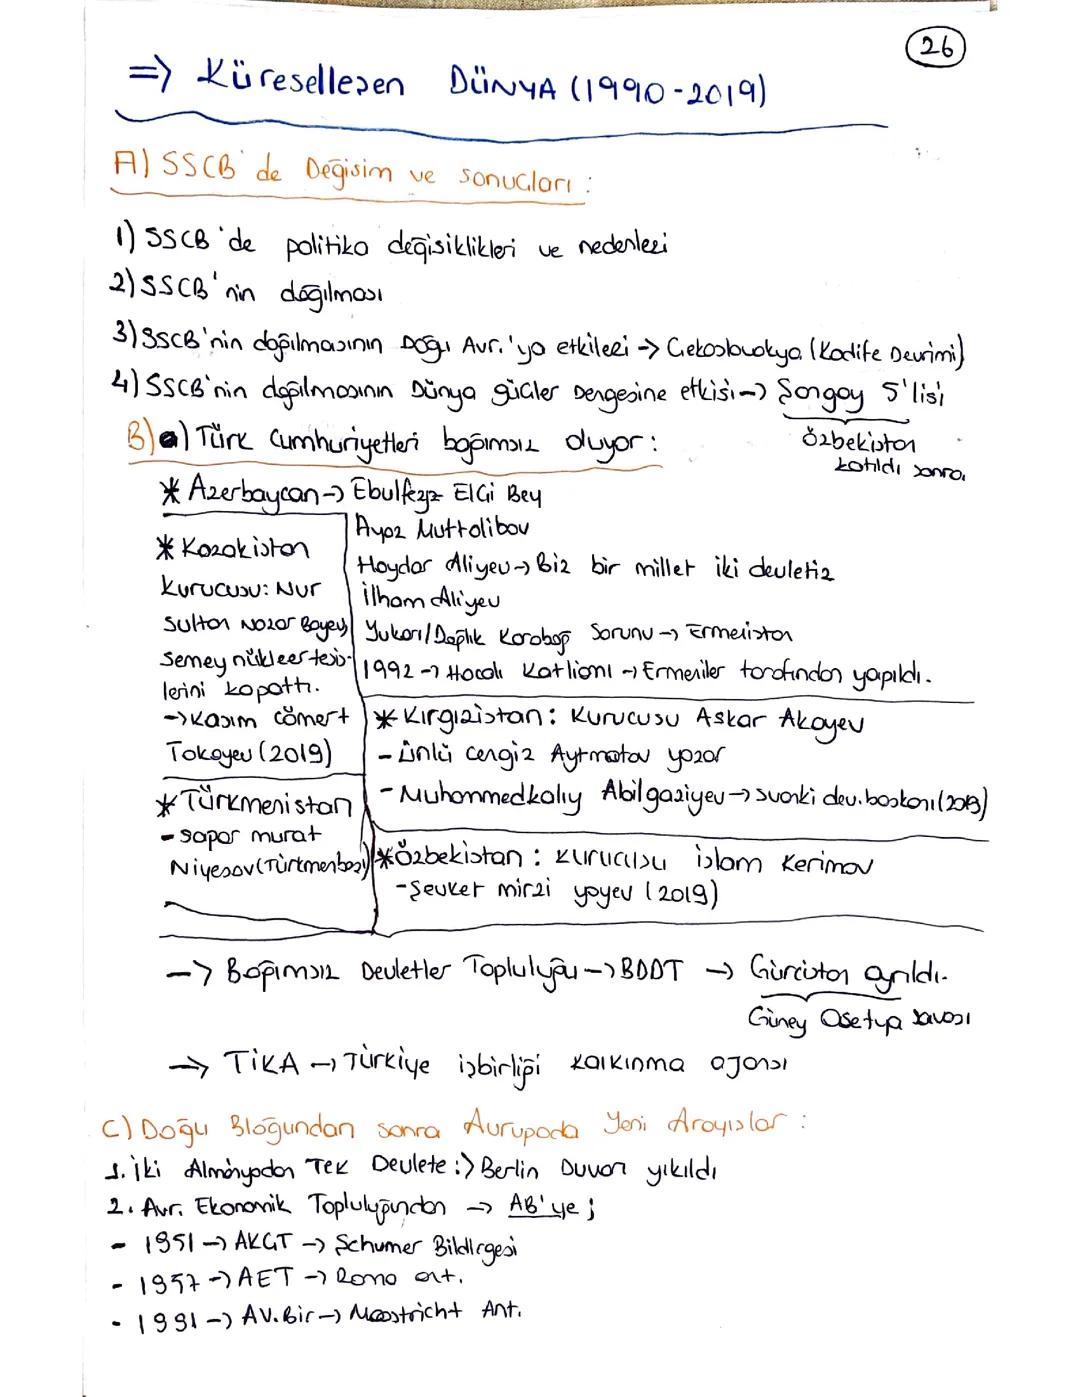 26
=> Küreselleşen DÜNYA (1990-2019)
A) SSCB'de Değişim ve sonuçları :
1) SSCB'de politika değişiklikleri ve nedenleri
2) SSCB'nin dağılması
3) SSCB'nin dağılmasının Doğu Avr.'ya etkileri -> Çekoslovakya (Kadife Devrimi)
4) SSCB'nin dağılmasının Dünya güçler Dengesine etkisi -> Şangay 5'lisi
Özbekistan
katıldı sonra.
B) a) Türk Cumhuriyetleri bağımsız oluyor :
* Azerbaycan -> Ebulfeyz Elçi Bey
Ayaz Muttalibov
Haydar Aliyev -> Biz bir millet iki devletiz
İlham Aliyev
Yukarı/Dağlık Karabağ Sorunu -> Ermenistan
1992 -> Hocalı Katliamı -> Ermeniler tarafından yapıldı.
* Kazakistan
Kurucusu: Nur
Sultan Nazar Bayev
Semey nükleer tesis-
lerini kapattı.
-> Kasım cömert
Tokayev (2019)
* Kırgızistan : Kurucusu Askar Akayev
- Ünlü Cengiz Aytmatov yazar
- Muhammedkalıy Abilgaziyev -> şuanki dev. başkanı (2019)
* Türkmenistan
- Sapar murat
Niyesov (Türkmenbaşı)
* Özbekistan : kurucusu islam Kerimov
- Şevket mirzi yoyev (2019)
-> Bağımsız Devletler Topluluğu -> BDDT -> Gürcistan ayrıldı.
Güney Osetya savaşı
-> TİKA -> Türkiye işbirliği kalkınma ajansı
C) Doğu Bloğundan sonra Avrupada Yeni Arayışlar :
1. İki Almanyadan Tek Devlete :) Berlin Duvarı yıkıldı
2. Avr. Ekonomik Topluluğundan -> AB'ye ;
- 1951 -> AKÇT -> Schumer Bildirgesi
- 1957 -> AET -> Roma ant.
- 1991 -> AV. Bir -> Maastricht Ant.